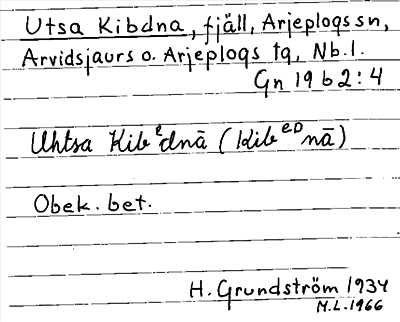 Utsa Kibdna, fjäll, Arjeplogs sn,
Arvidsjaurs o. Arjeplogs tg, Nb.l.
Gn 19 b 2:4
Uhtsa Kibᵉdnā (Kibᵉᴰnā)
Obek. bet.
H. Grundström 1934
M.L. 1966